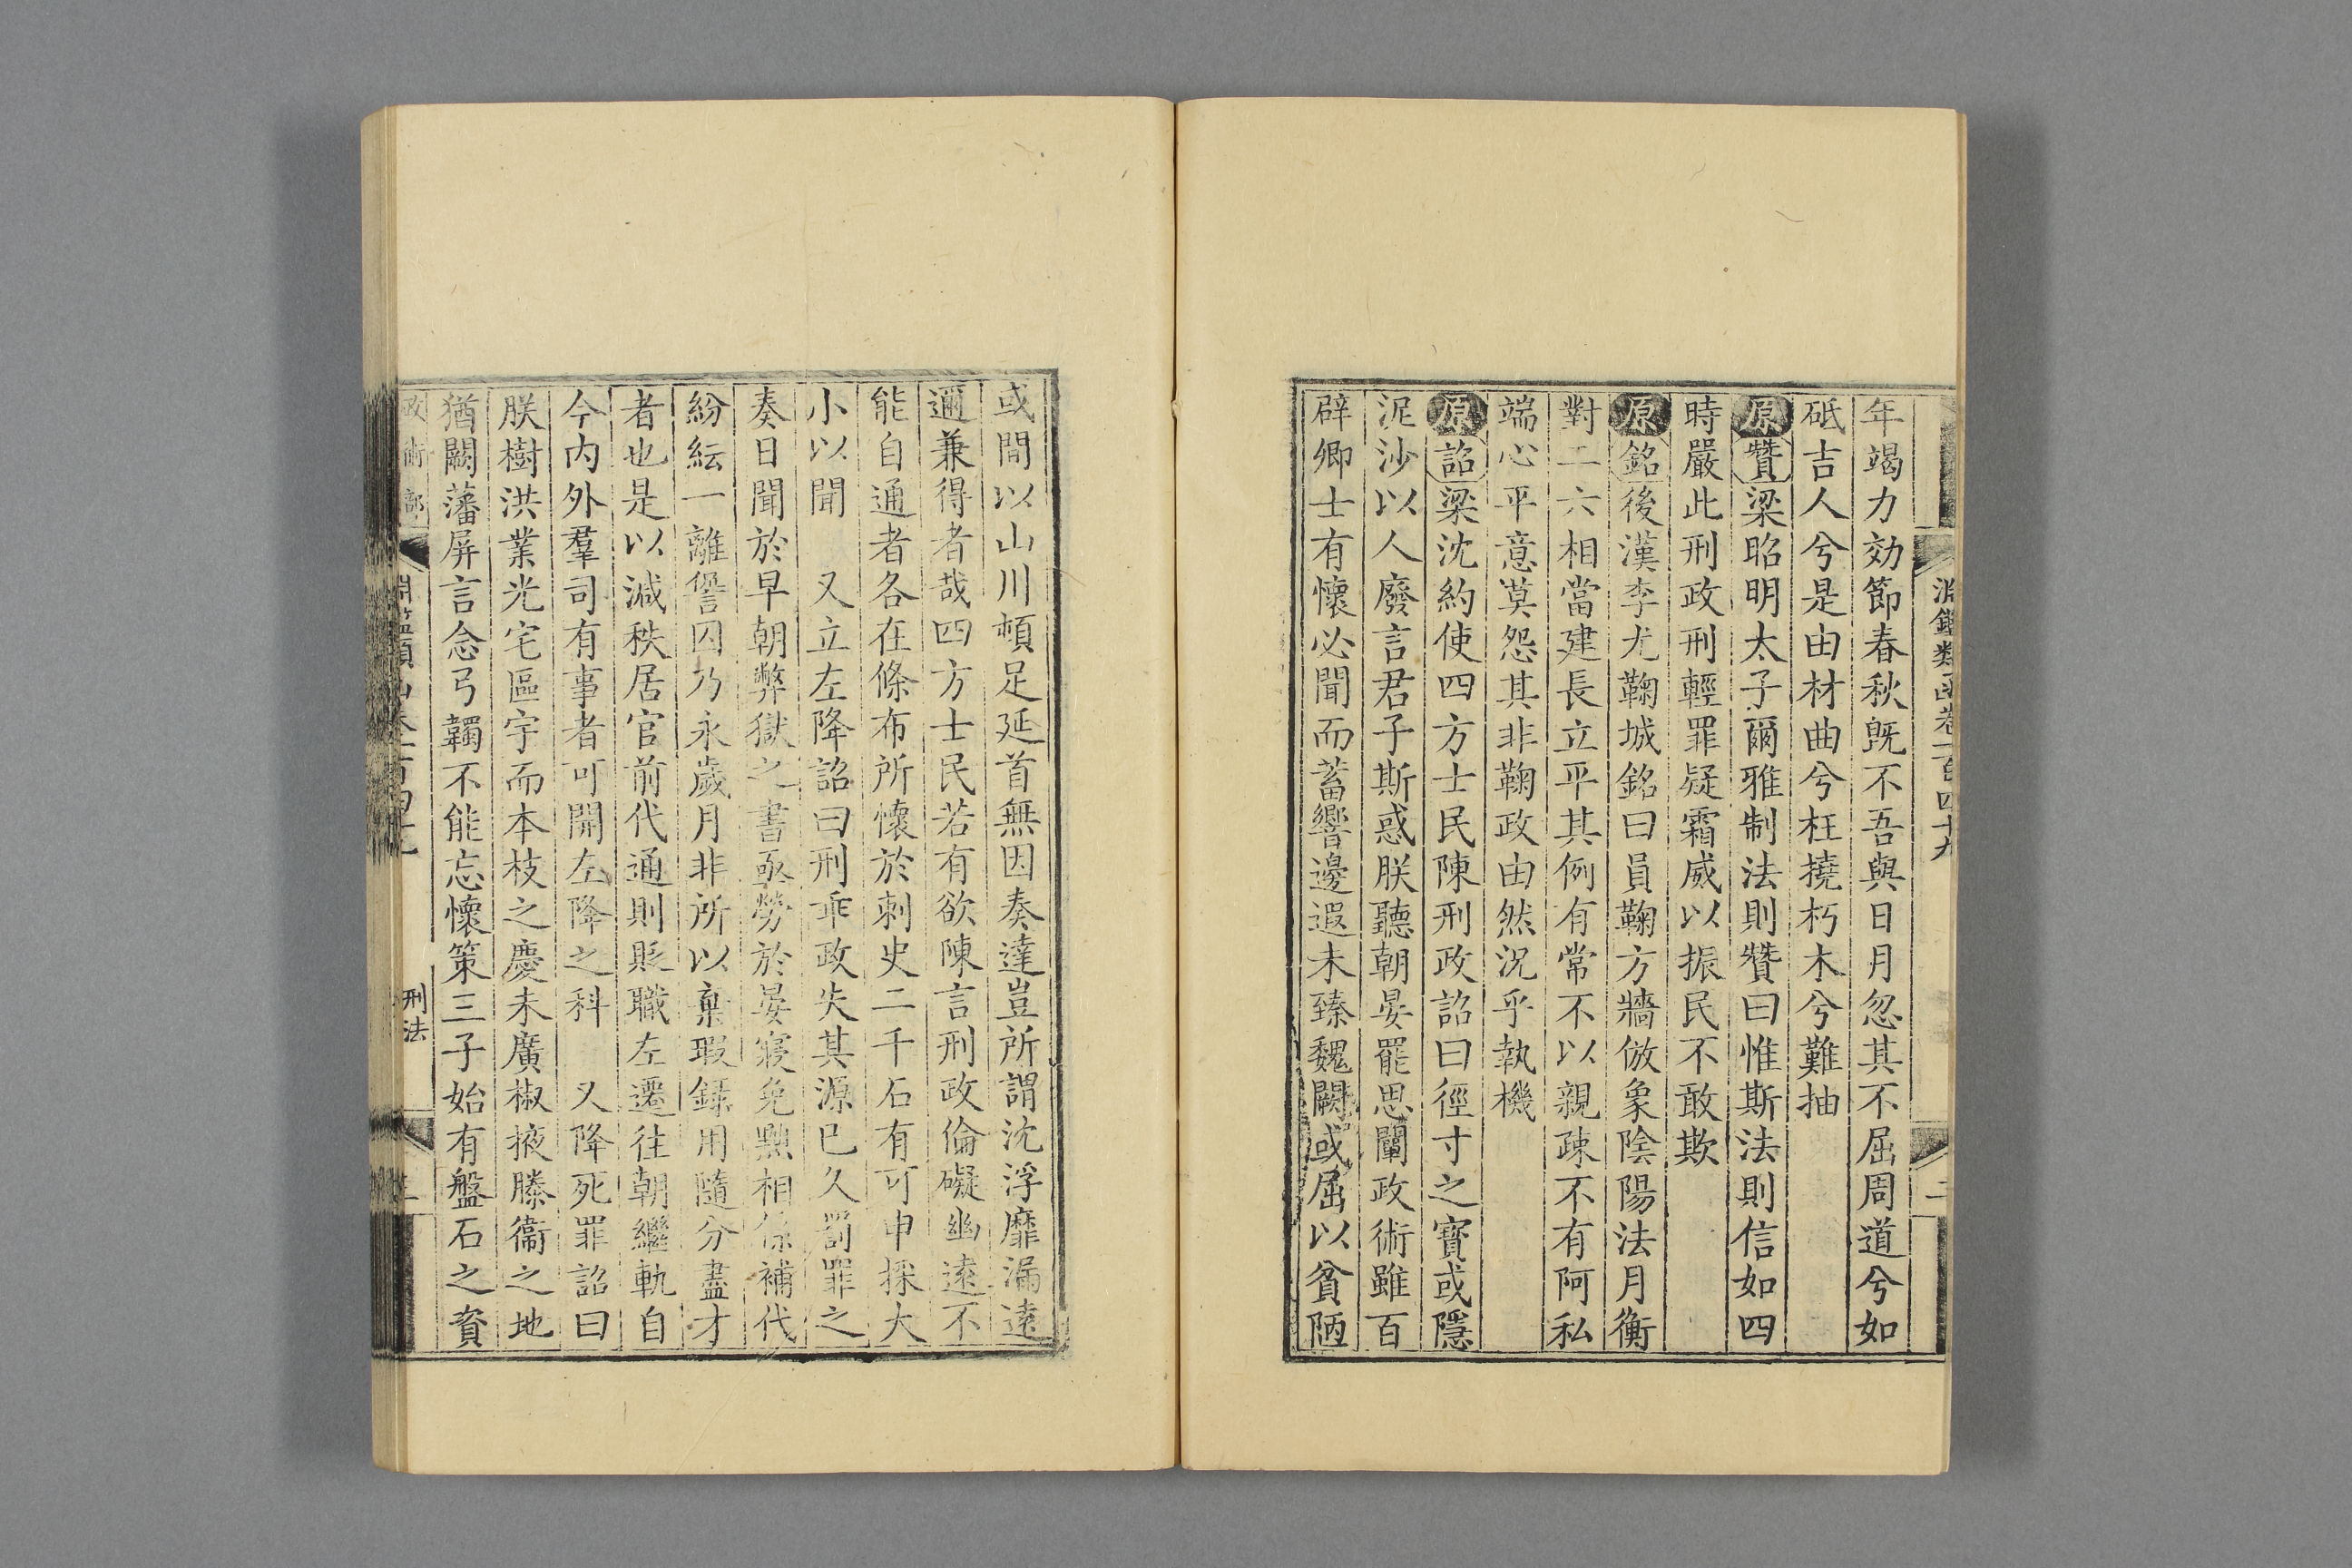 淵鑑類函卷一百四十九
二
年竭力効節春秋旣不吾與日月忽其不屈周道兮如
砥吉人兮是由材曲兮枉撓朽木兮難抽
原贊梁昭明太子爾雅制法則贊曰惟斯法則信如四
時嚴此刑政刑輕罪疑霜威以振民不敢欺
原銘後漢李尤鞠城銘曰員鞠方牆倣象陰陽法月衡
對二六相當建長立平其例有常不以親疎不有阿私
端心平意莫怨其非鞠政由然況乎執機
原詔梁沈約使四方士民陳刑政詔曰徑寸之寶或隱
泥沙以人廢言君子斯惑朕聽朝晏罷思闡政術雖百
辟卿士有懷必聞而蓄響邊遐未臻魏闕或屈以貧陋
或間以山川頓足延首無因奏達豈所謂沈浮靡漏遠
邇兼得者哉四方士民若有欲陳言刑政倫礙幽遠不
能自通者各在條布所懷於刺史二千石有可申採大
小以聞　又立左降詔曰刑乖政失其源已久罰罪之
奏日聞於早朝弊獄之書亟勞於晏寢免黜相係補代
紛紜一離諐囚乃永歲月非所以棄瑕錄用隨分盡才
者也是以減秩居官前代通則貶職左遷往朝繼軌自
今內外羣司有事者可開左降之科　又降死罪詔曰
朕樹洪業光宅區宇而本枝之慶未廣椒掖滕衞之地
猶闕藩屏言念弓韣不能忘懷策三子始有盤石之資
政術部
刑法
三